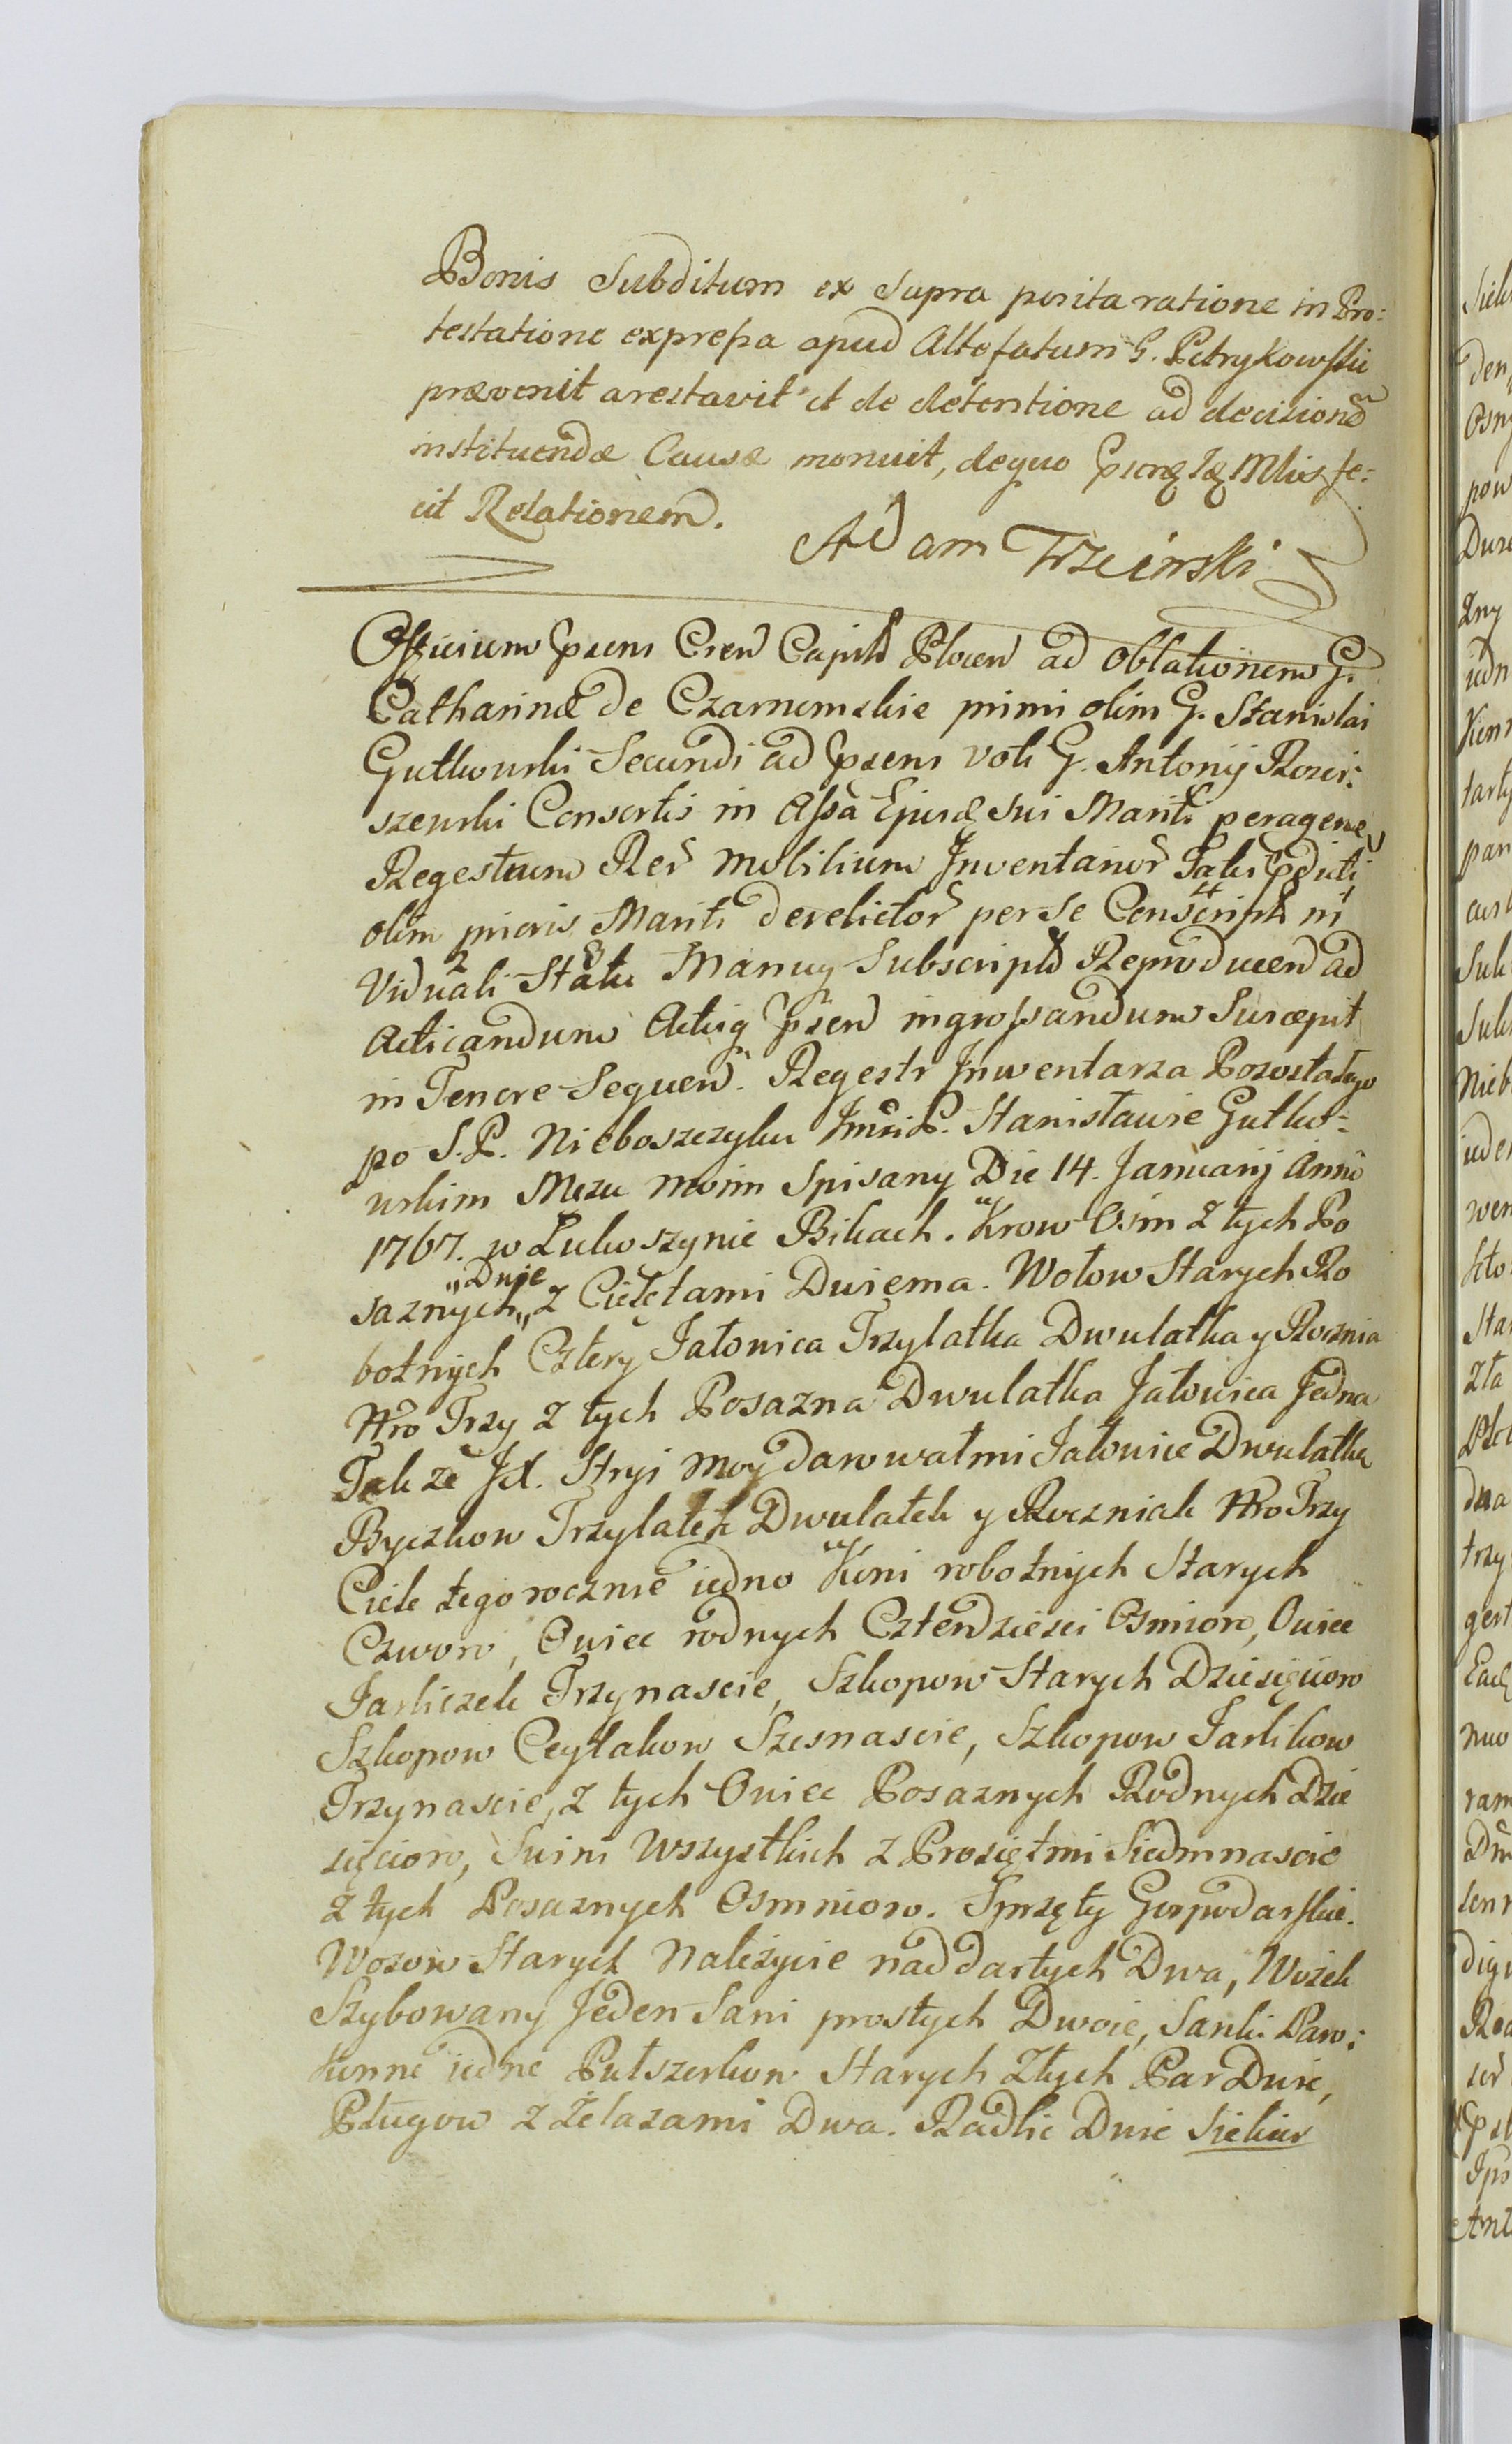 Bonis Subditum ex Supra posita ratione in Pro:
testatione expressa apud Altefatum G. Petrykowski
prævenit arestavit et de detentione ad decisionẽ
instituendæ Causæ monuit, de quo Mlis fe:
cit Relationem.
Adam Trzcinski
Officium Prsens Cren Capitl Plocen ad Oblationem G.
Catharinæ de Czarnomskie primi olim G. Stanislai
Gutkowski Secundi ad Prsens voti G. Antonij Rosci:
szewski Consortis in Assa Ejusd Sui Mariti peragene
Regestrum Rer Mobilium Inventarior
olim prioris Mariti derelictor per Se Conscript in
Viduali Statu Manuq Subscriptt Reproducen ad
Acticandum Actisq Prsen ingrossandum Suscepit
in Tenore Sequen. Regestr Inwentarza Pozostałego
po S.P. Nieboszczyku Jmsci P. Stanisławie Gutko-
wskim Mezu moim Spisany Die 14. Januarij Anno
1767. w Lukoszynie Bikach. Krow Osm z tych Po
saznych „Dwie„ z Cielętami Dwiema. Wołow Starych Ro
botnych Cztery Jałonica Trzylatka Dwulatka y Rocznia
Nro Trzy z tych Posazna Dwulatka Jałowica Jedna
Takze Jd. Stryi moy darowałmi Jałowice Dwulatke
Byczkow Trzylatek Dwulatek y Roczniak Nro Trzy
Ciele tegorocznie iedno Koni robotnych Starych
Czworo, Owiec rodnych Czterdziesci Osmioro, Owiec
Jarliczek Trzynascie, Szkopow Starych Dziesięcioro
Szkopow Ceytakow Szesnascie, Szkopow Jarlikow
Trzynascie, z tych Owiec Posaznych Rodnych Dzie
sięcioro, Swini Wszystkich z Prosiętmi Siedmnascie
z tych Posaznych Osmnioro. Sprzęty Gospodarskie.
Wozow Starych Nalezycie naddartych Dwa, Wozek
Szybowany Jeden Sani prostych Dwoie, Sanki Paro:
konne iedne Pułszorkow Starych Złych Par Dwie,
Pługow z Żelazami Dwa. Radlic Dwie Siekier